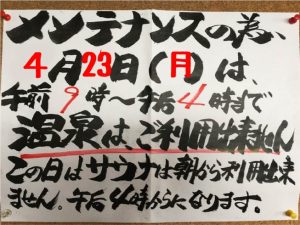 メンテナンスの為、
4月23日(月)は、
午前9時～午后4時まで
温泉は、ご利用出来ません
この日はサウナは朝から利用出来
ません。午后4時からになります。